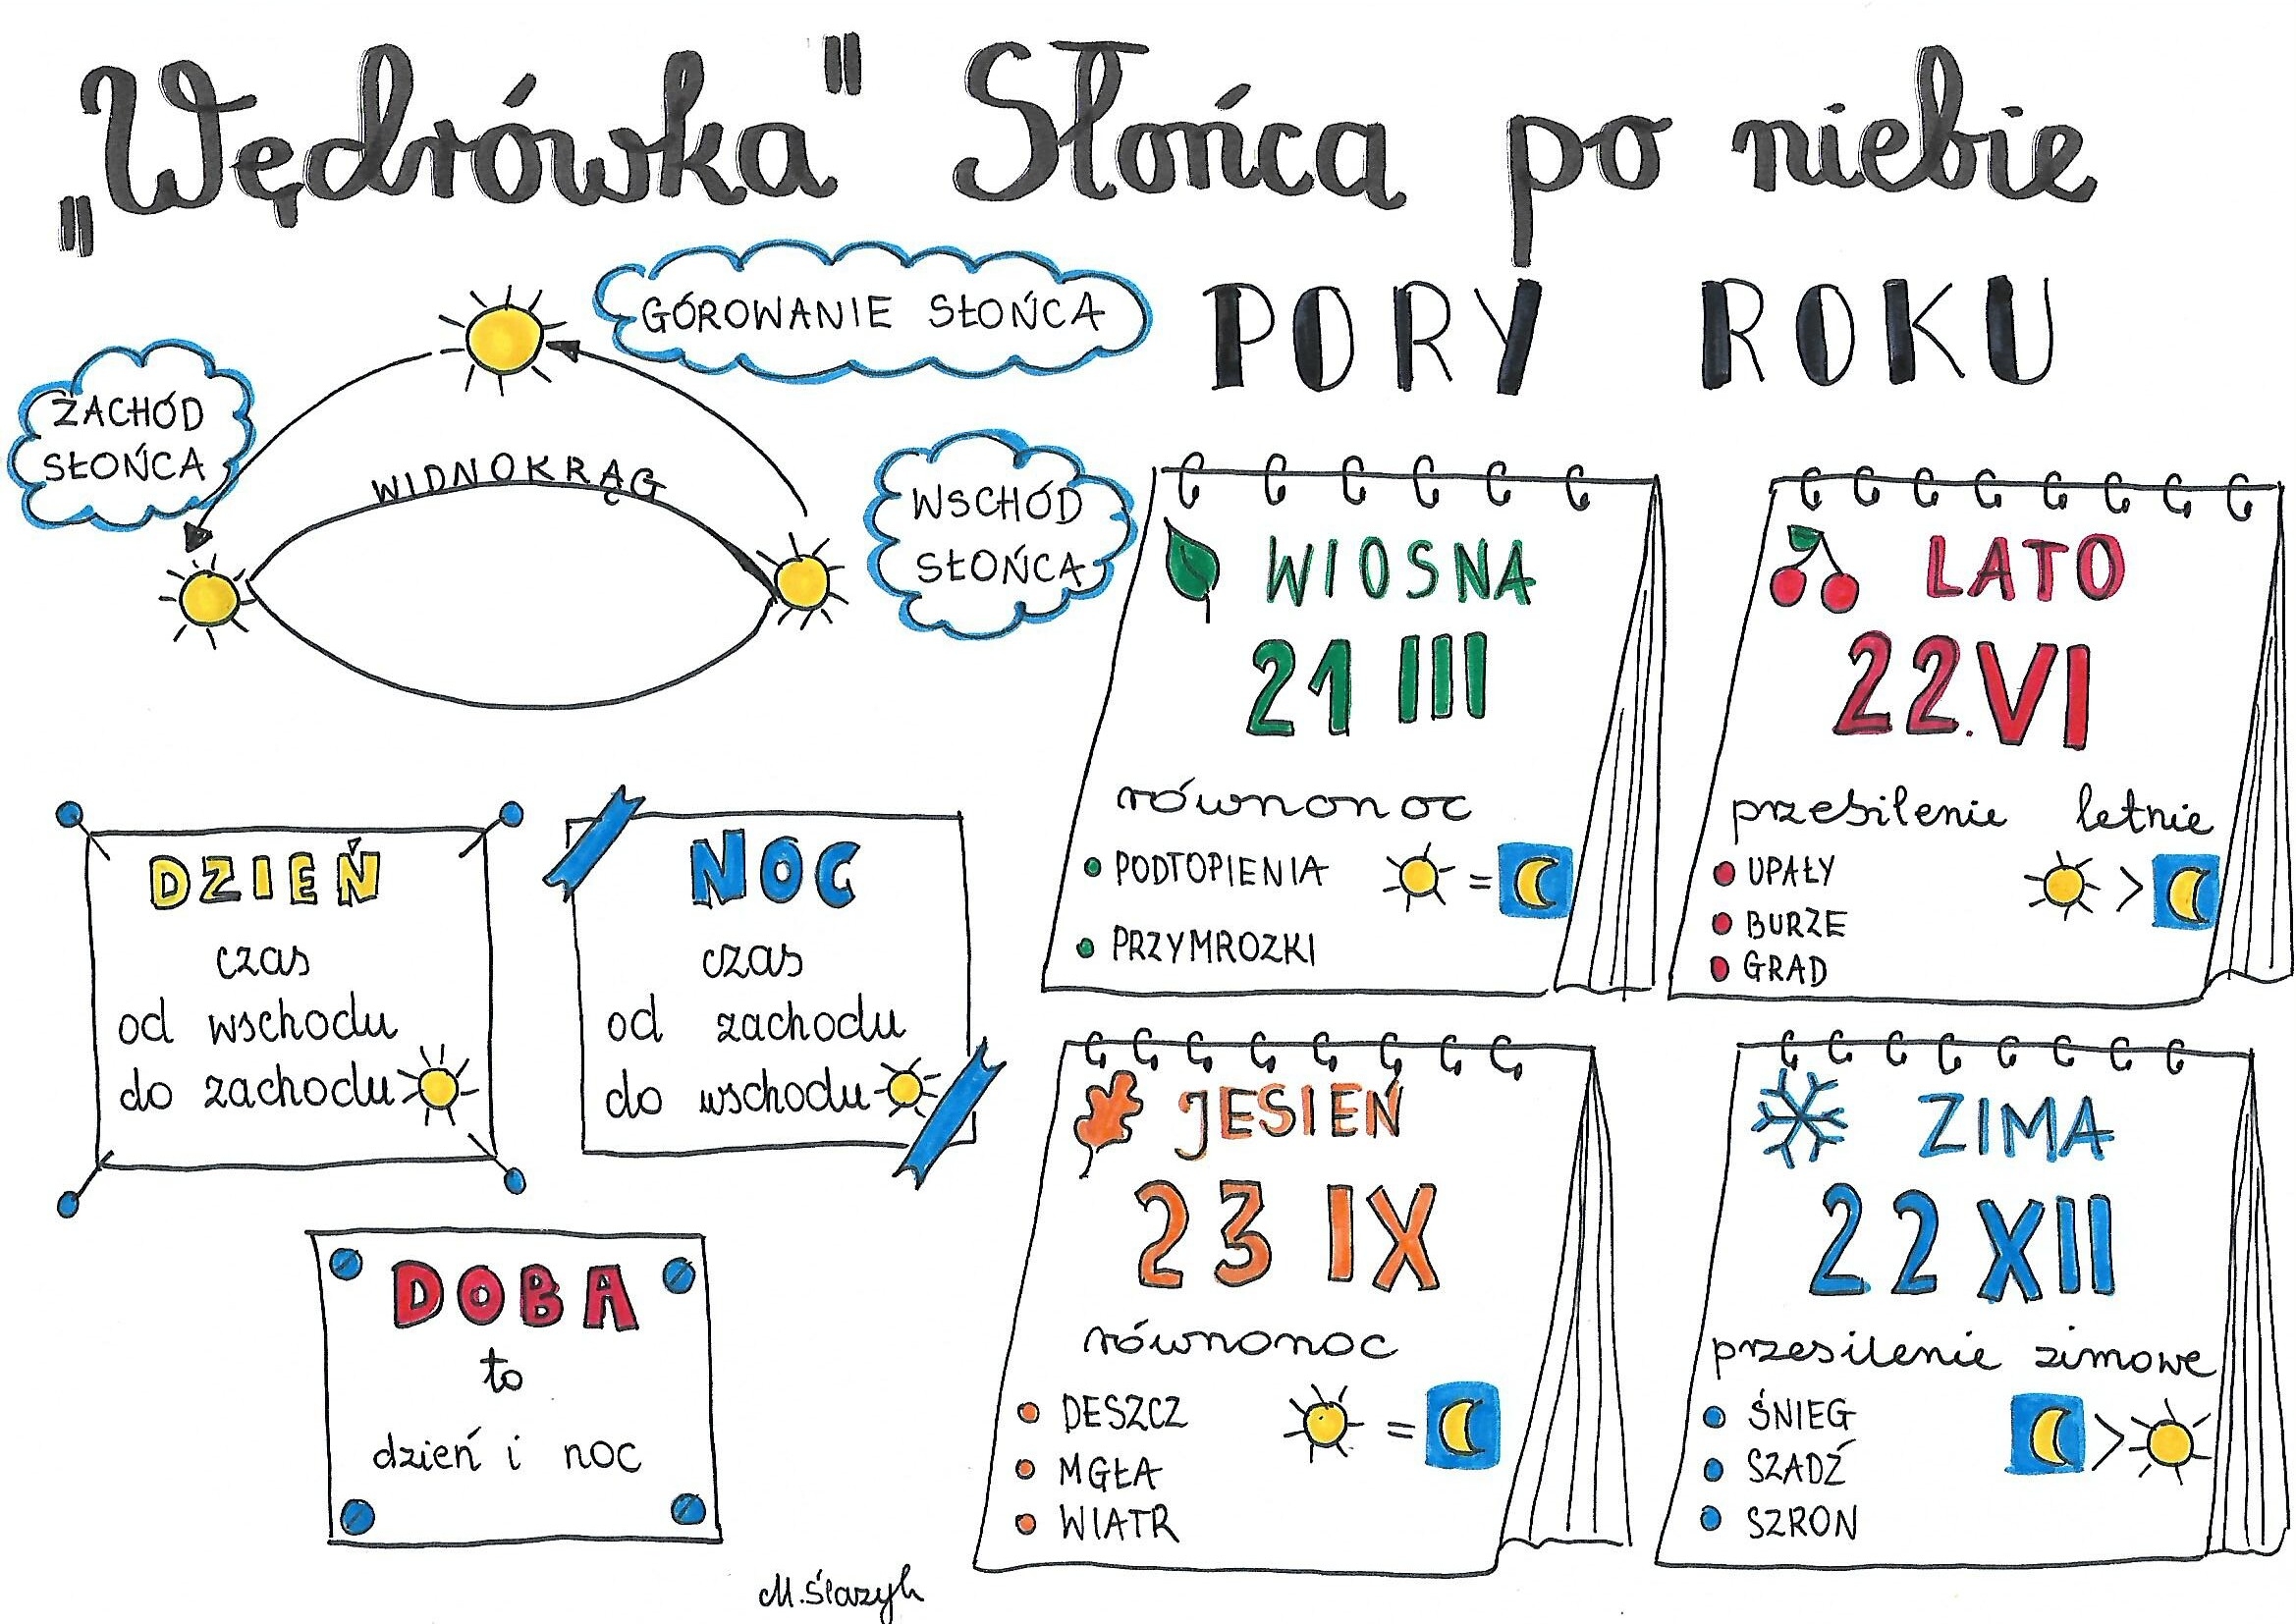 „Wędrówka" Słońca po niebie
GÓROWANIE SŁOŃCA
ZACHÓD
SŁOŃCA
WIDNOKRĄG
WSCHÓD
SŁOŃCA
DZIEŃ
czas
od wschodu
do zachodu
NOC
czas
od zachodu
do wschodu
DOBA
to
dzień i noc
PORY ROKU
WIOSNA
21 III
równonoc
• PODTOPIENIA
=
• PRZYMROZKI
LATO
22.VI
przesilenie letnie
• UPAŁY
>
• BURZE
• GRAD
JESIEŃ
23 IX
równonoc
• DESZCZ
=
• MGŁA
• WIATR
ZIMA
22 XII
przesilenie zimowe
• ŚNIEG
>
• SZADŹ
• SZRON